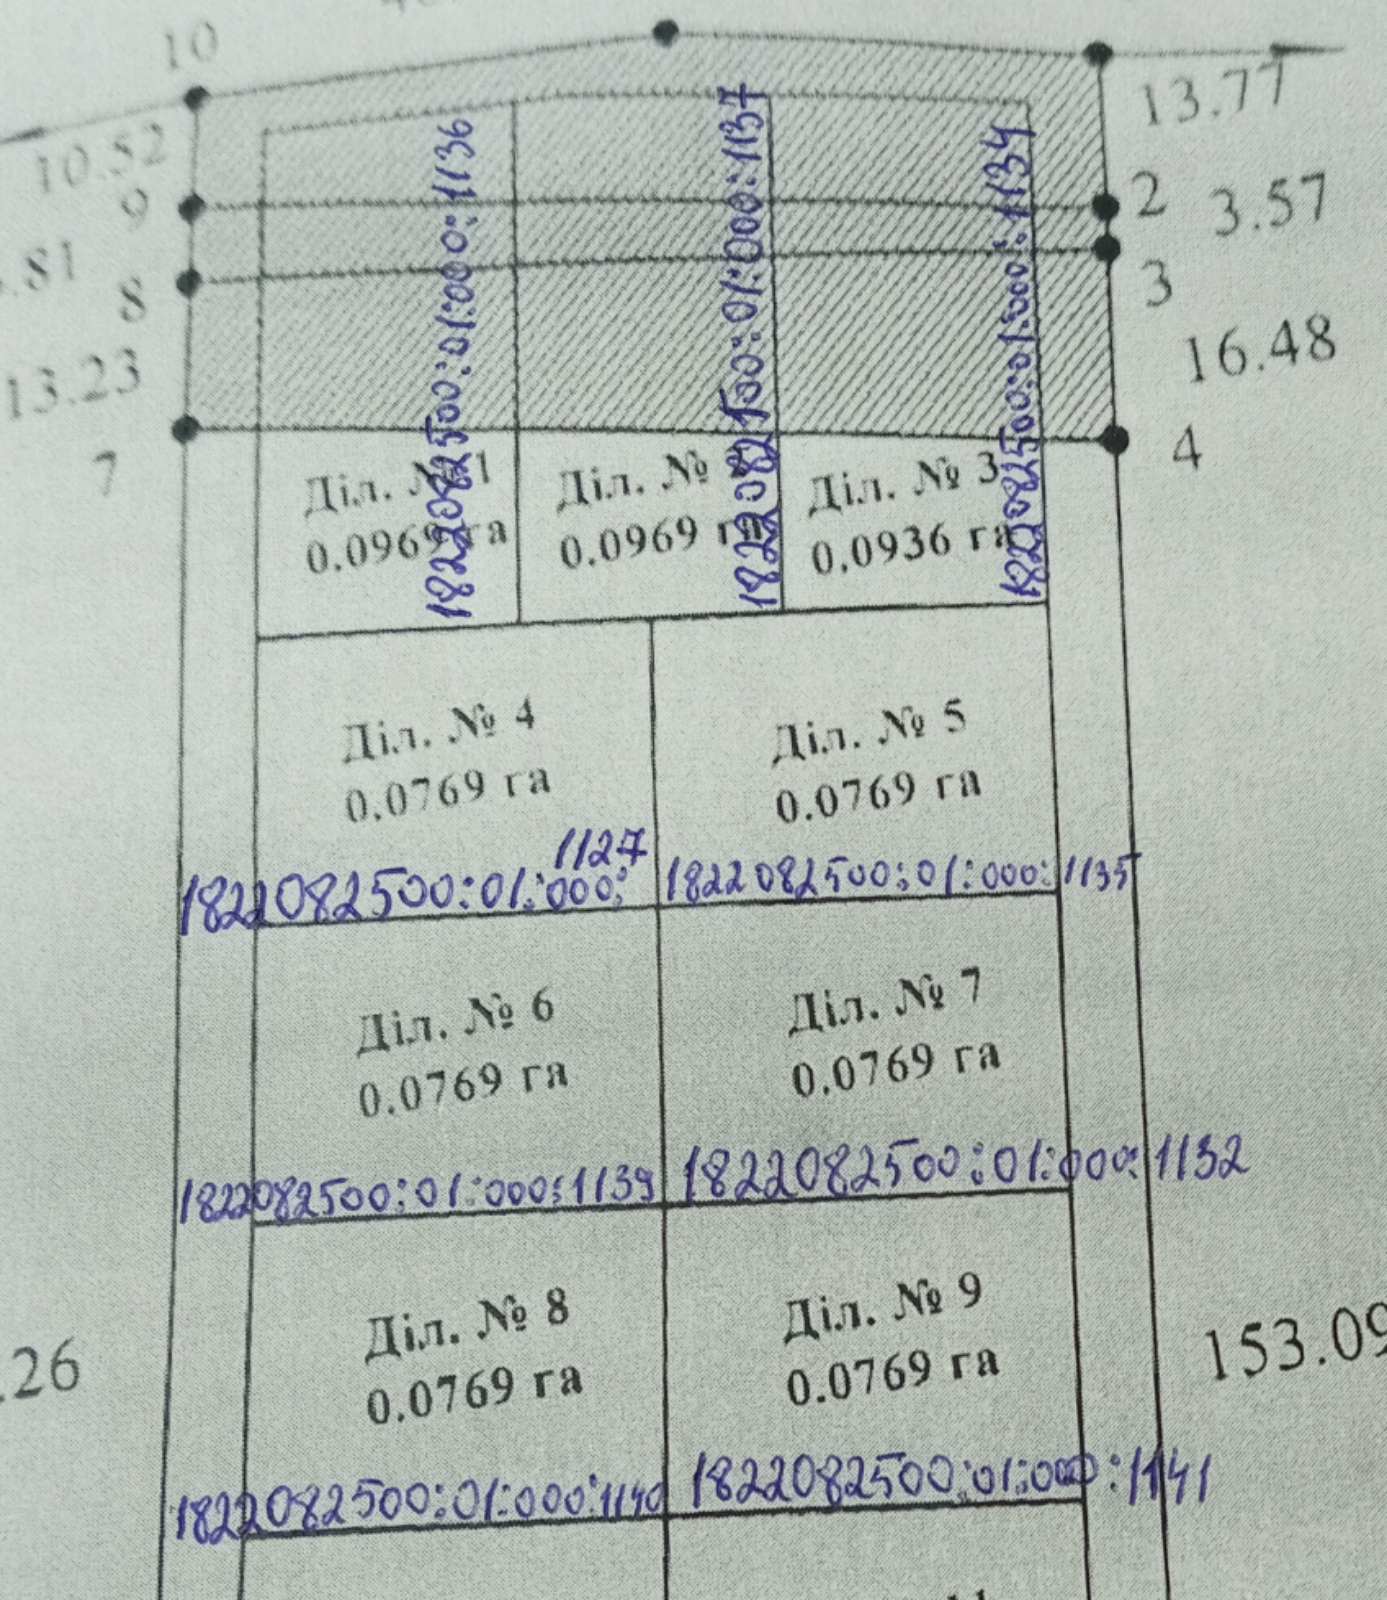 10
10.52
9
.81
8
13.23
7
13.77
2
3.57
3
16.48
4
1822082500:01:000:1136
1822082500:01:000:1137
1822082500:01:000:1134
Діл. № 1
0.0969 га
Діл. № 2
0.0969 га
Діл. № 3
0.0936 га
Діл. № 4
0.0769 га
1127
1822082500:01:000:
Діл. № 5
0.0769 га
1822082500:01:000:1135
Діл. № 6
0.0769 га
1822082500:01:000:1139
Діл. № 7
0.0769 га
1822082500:01:000:1132
Діл. № 8
0.0769 га
1822082500:01:000:1140
Діл. № 9
0.0769 га
1822082500:01:000:1141
.26
153.09